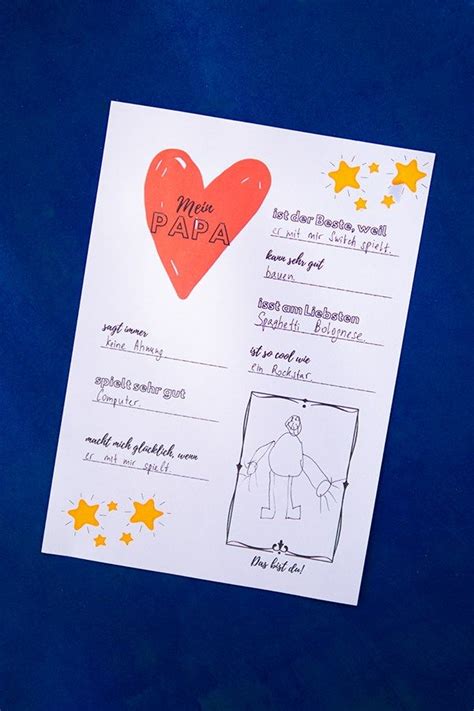 Mein
PAPA
ist der Beste, weil
er mit mir Switch spielt.
kann sehr gut
bauen.
isst am Liebsten
Spaghetti Bolognese.
ist so cool wie
ein Rockstar.
sagt immer
keine Ahnung
spielt sehr gut
Computer.
macht mich glücklich, wenn
er mit mir spielt.
Das bist du!